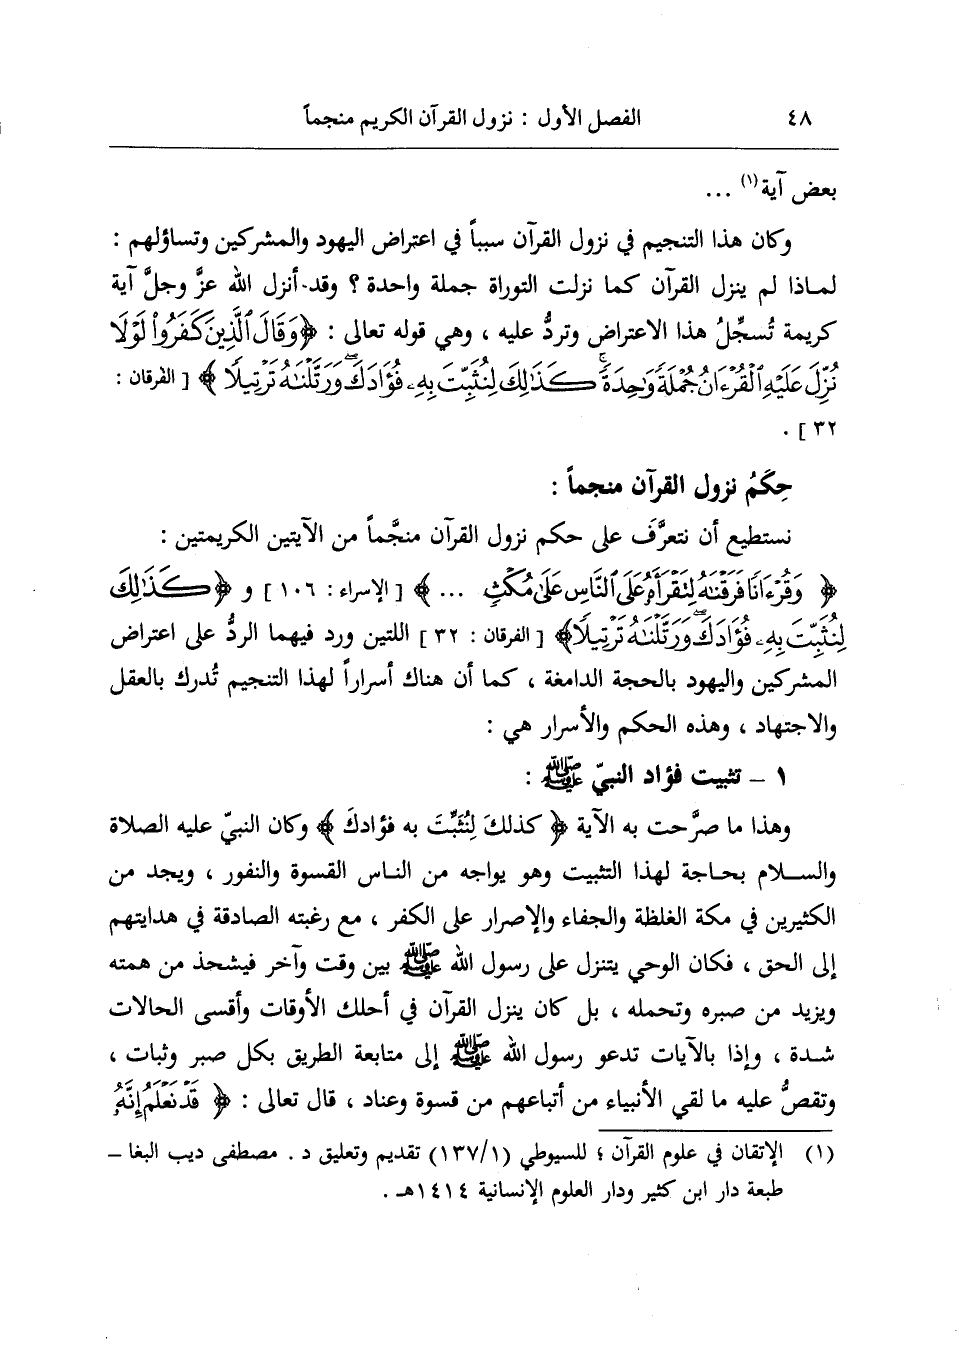 ٤٨ الفصل الأول : نزول القرآن الكريم منجماً
بعض آية(١) ...
وكان هذا التنجيم في نزول القرآن سبباً في اعتراض اليهود والمشركين وتساؤلهم :
لماذا لم ينزل القرآن كما نزلت التوراة جملة واحدة ؟ وقد أنزل الله عزَّ وجلَّ آية
كريمة تُسجِّلُ هذا الاعتراض وتردُّ عليه ، وهي قوله تعالى : ﴿ وَقَالَ ٱلَّذِينَ كَفَرُواْ لَوْلَا
نُزِّلَ عَلَيْهِ ٱلْقُرْءَانُ جُمْلَةً وَٰحِدَةً ۚ كَذَٰلِكَ لِنُثَبِّتَ بِهِۦ فُؤَادَكَ ۖ وَرَتَّلْنَٰهُ تَرْتِيلًا ﴾ [ الفرقان :
٣٢ ] .
حِكَمُ نزول القرآن منجماً :
نستطيع أن نتعرَّفَ على حكم نزول القرآن منجَّماً من الآيتين الكريمتين :
﴿ وَقُرْءَانًا فَرَقْنَٰهُ لِتَقْرَأَهُۥ عَلَى ٱلنَّاسِ عَلَىٰ مُكْثٍ ... ﴾ [ الإسراء : ١٠٦ ] و ﴿ كَذَٰلِكَ
لِنُثَبِّتَ بِهِۦ فُؤَادَكَ ۖ وَرَتَّلْنَٰهُ تَرْتِيلًا ﴾ [ الفرقان : ٣٢ ] اللتين ورد فيهما الردُّ على اعتراض
المشركين واليهود بالحجة الدامغة ، كما أن هناك أسراراً لهذا التنجيم تُدرك بالعقل
والاجتهاد ، وهذه الحكم والأسرار هي :
١ – تثبيت فؤاد النبيّ ﷺ :
وهذا ما صرَّحت به الآية ﴿ كذلكَ لِنُثَبِّتَ به فؤادكَ ﴾ وكان النبيّ عليه الصلاة
والسلام بحاجة لهذا التثبيت وهو يواجه من الناس القسوة والنفور ، ويجد من
الكثيرين في مكة الغلظة والجفاء والإصرار على الكفر ، مع رغبته الصادقة في هدايتهم
إلى الحق ، فكان الوحي يتنزل على رسول الله ﷺ بين وقت وآخر فيشحذ من همته
ويزيد من صبره وتحمله ، بل كان ينزل القرآن في أحلك الأوقات وأقسى الحالات
شدة ، وإذا بالآيات تدعو رسول الله ﷺ إلى متابعة الطريق بكل صبر وثبات ،
وتقصُّ عليه ما لقي الأنبياء من أتباعهم من قسوة وعناد ، قال تعالى : ﴿ قَدْ نَعْلَمُ إِنَّهُۥ
(١) الإتقان في علوم القرآن ؛ للسيوطي (١٣٧/١) تقديم وتعليق د . مصطفى ديب البغا –
طبعة دار ابن كثير ودار العلوم الإنسانية ١٤١٤هـ .